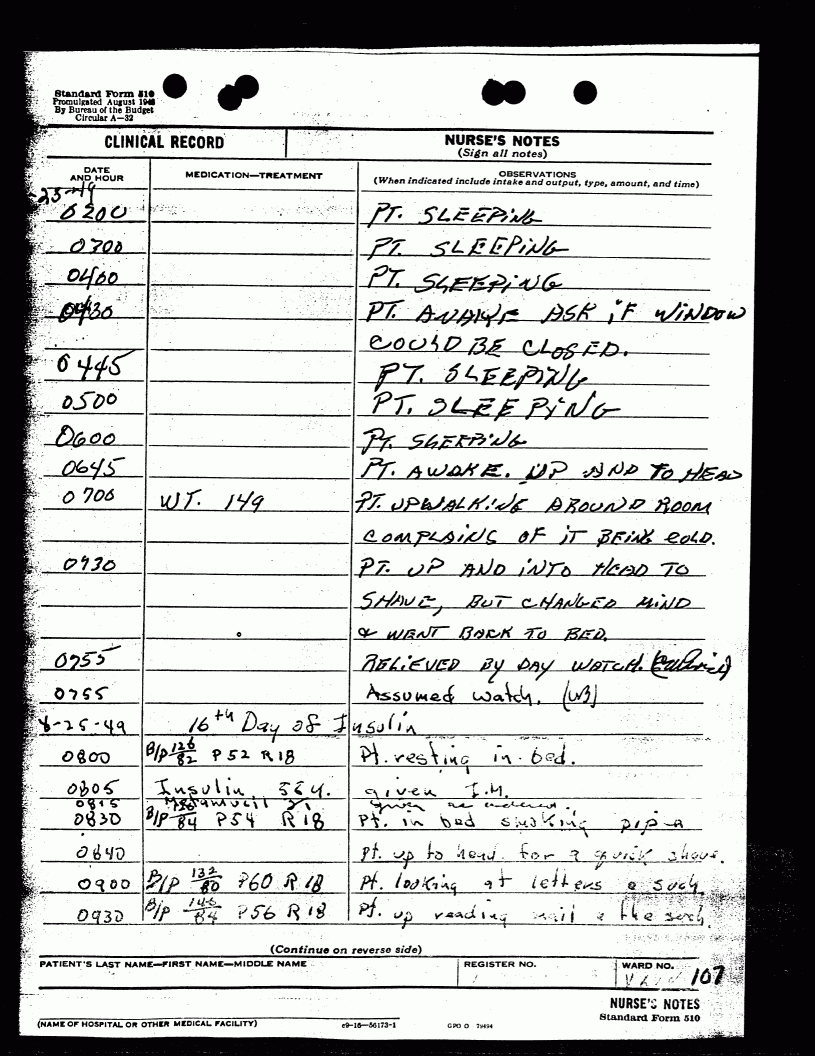 Standard Form 510
Promulgated August 1948
By Bureau of the Budget
Circular A—32
CLINICAL RECORD
NURSE'S NOTES
(Sign all notes)
DATE
AND HOUR
MEDICATION—TREATMENT
OBSERVATIONS
(When indicated include intake and output, type, amount, and time)
-25-49
0200 PT. SLEEPING
0300 PT. SLEEPING
0400 PT. SLEEPING
0430 PT. AWAKE ASK IF WINDOW
COULD BE CLOSED.
0445 PT. SLEEPING
0500 PT. SLEEPING
0600 PT. SLEEPING
0645 PT. AWAKE. UP AND TO HEAD
0700 WT. 149 PT. UP WALKING AROUND ROOM
COMPLAING OF IT BEING COLD.
0730 PT. UP AND INTO HEAD TO
SHAVE, BUT CHANGED MIND
& WENT BACK TO BED.
0755 RELIEVED BY DAY WATCH.
0755 Assumed watch. (WB)
8-25-49 16th Day of Insulin
0800 B/P 126/82 P 52 R 18 Pt. resting in bed.
0805 Insulin 55u. given I.M.
0815 Metamucil given as ordered.
0830 B/P /84 P54 R 18 Pt. in bed smoking pipe
0840 Pt. up to head for a quick shave.
0900 B/P 132/80 P60 R 18 Pt. looking at letters & such.
0930 B/P /84 P56 R 18 Pt. up reading mail & the such.
(Continue on reverse side)
PATIENT'S LAST NAME—FIRST NAME—MIDDLE NAME
REGISTER NO.
WARD NO.
107
NURSE'S NOTES
Standard Form 510
(NAME OF HOSPITAL OR OTHER MEDICAL FACILITY)
c9—16—56173-1
GPO O 79494